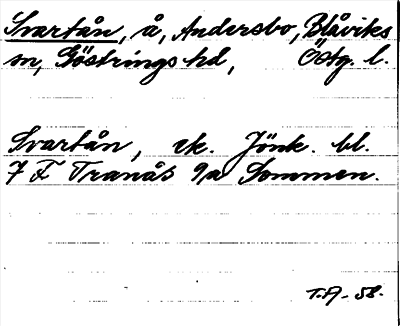 Svartån, å, Andersbo, Blåviks
sn, Göstrings hd, Östg. l.
Svartån, ek. Jönk. bl.
7 F Tranås 9a Sommen.
T.A. -58.